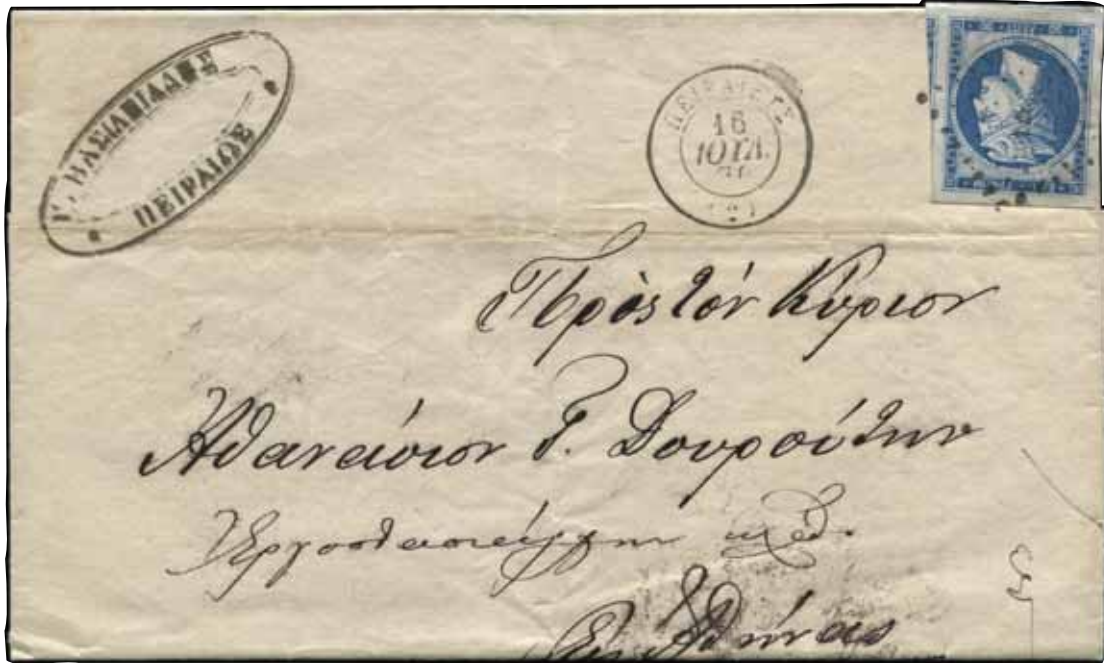 Γ. ΒΑΣΙΛΕΙΑΔΗΣ
ΠΕΙΡΑΙΩΣ
ΠΕΙΡΑΙΕΥΣ
16
ΙΟΥΛ.
(2)
Πρὸς τὸν Κύριον
Ἀθανάσιον Γ. Δουρούτην
Ἐργοστασιάρχην κλπ.
Εἰς Ἀθήνας